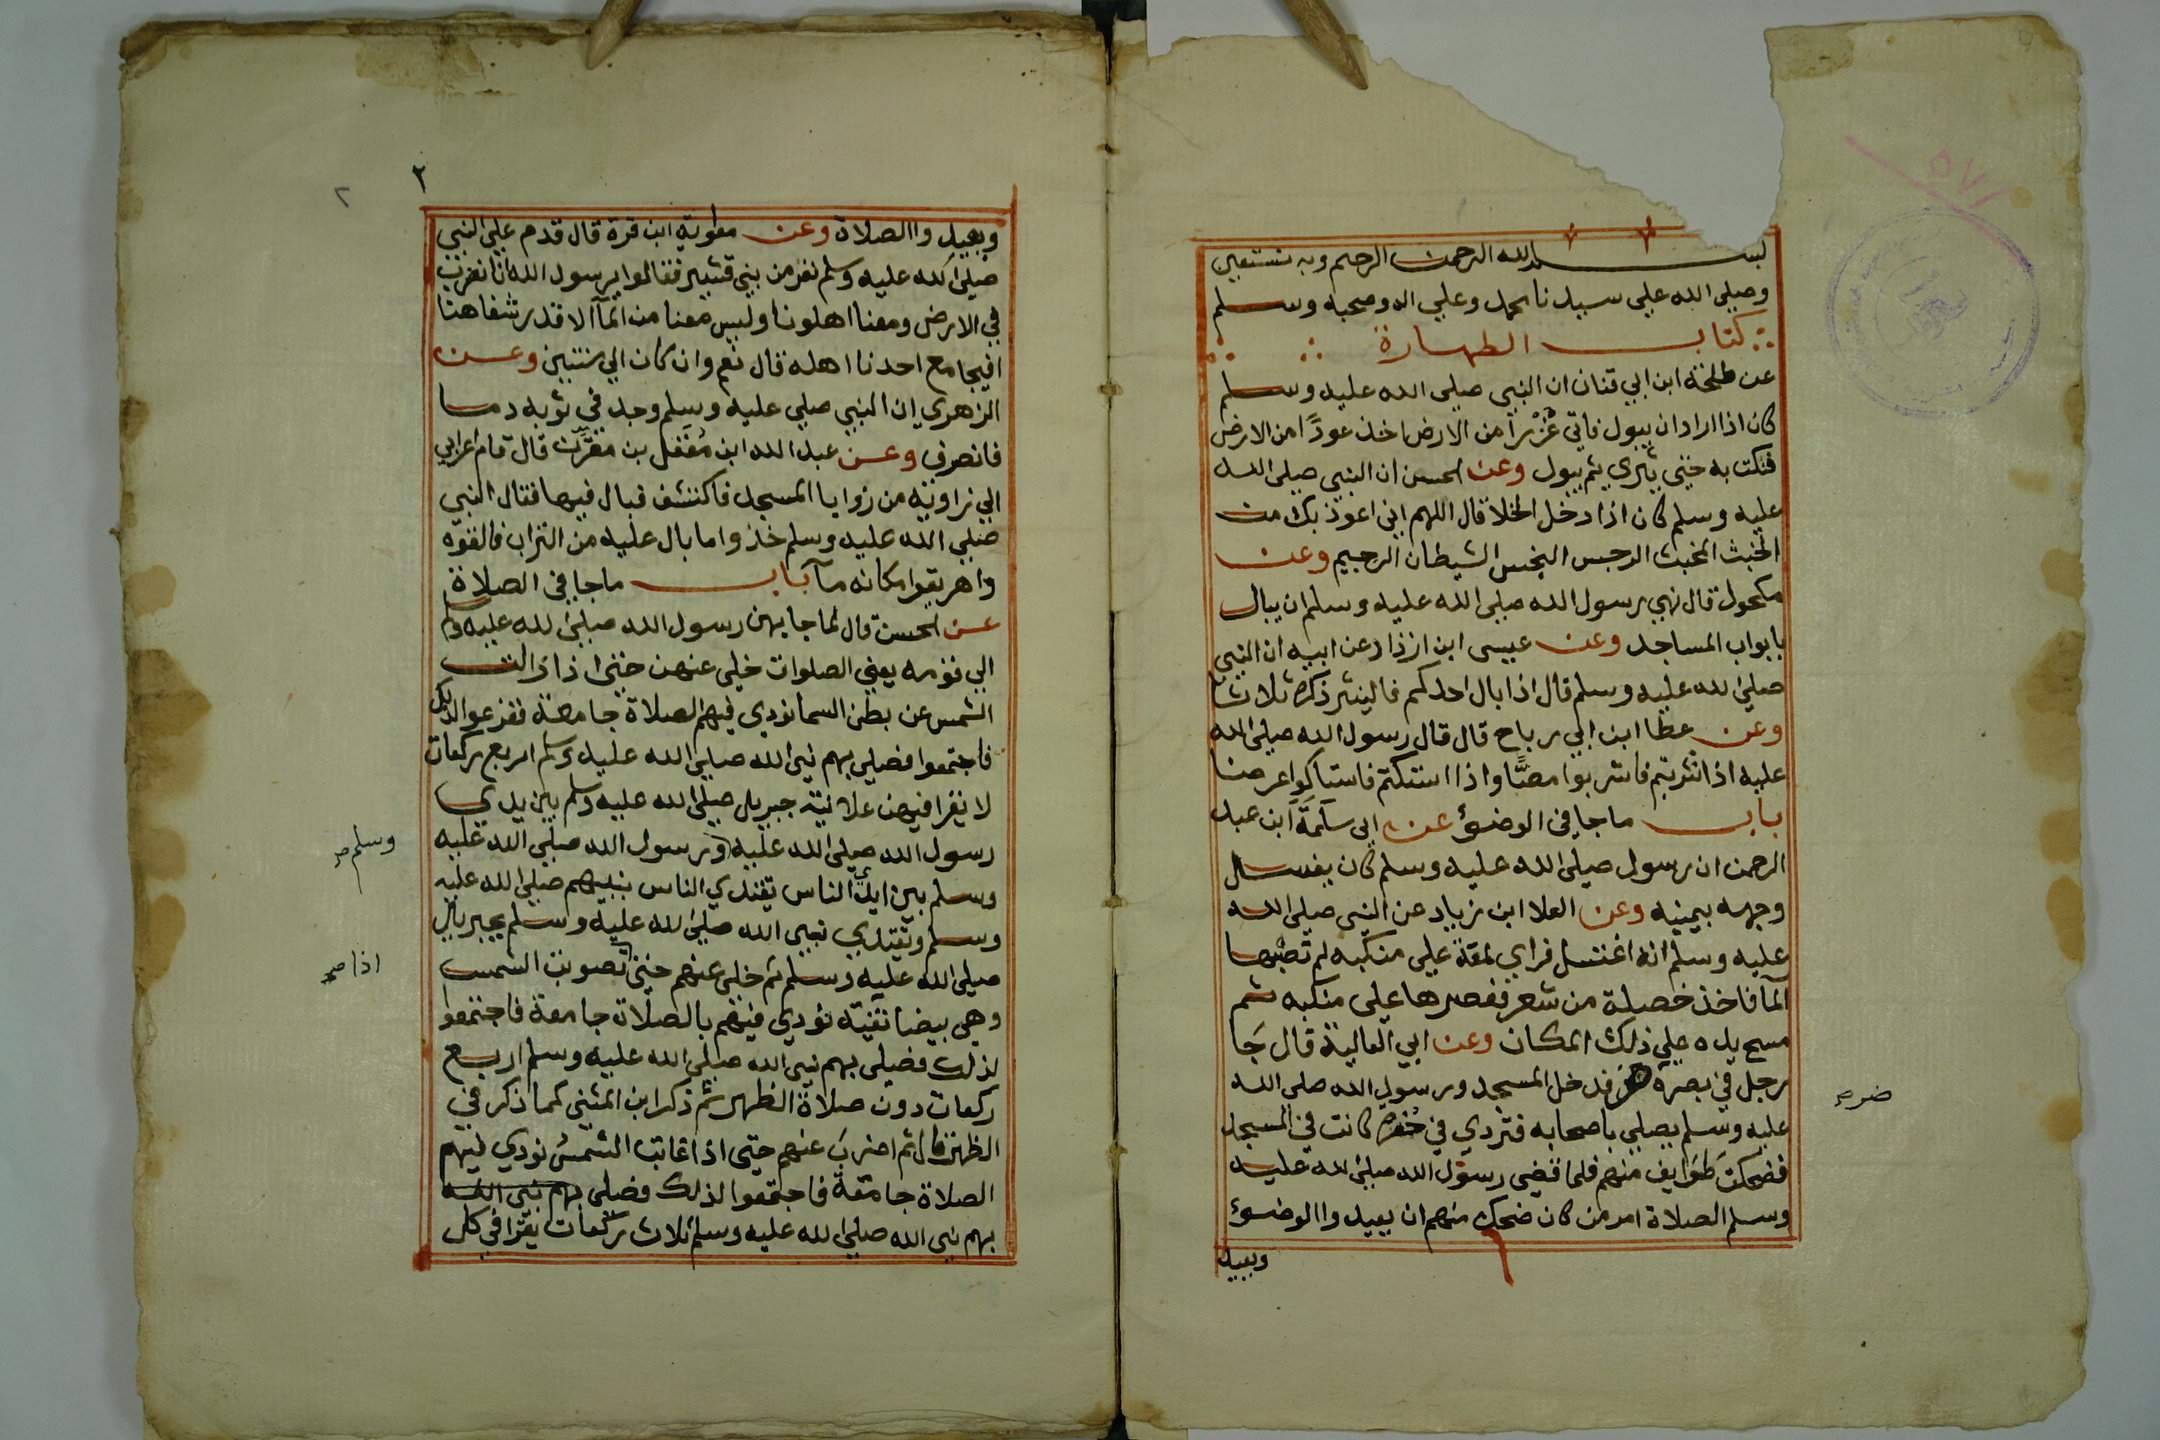 ٥٧١
بسم الله الرحمن الرحيم وبه نستعين
وصلى الله على سيدنا محمد وعلى اله وصحبه وسلم
كتاب الطهارة
عن طلحة ابن ابي قنان ان النبي صلى الله عليه وسلم
كان اذا اراد ان يبول فاتى عَزْزًا من الارض اخذ عودًا من الارض
فنكت به حتي يثري ثم يبول وعن الحسن ان النبي صلى الله
عليه وسلم كان اذا دخل الخلا قال اللهم اني اعوذ بك من
الخبث المخبث الرجس النجس الشيطان الرجيم وعن
مكحول قال نهي رسول الله صلى الله عليه وسلم ان يبال
بابواب المساجد وعن عيسى ابن ازداد عن ابيه ان النبي
صلى الله عليه وسلم قال اذا بال احدكم فالينثر ذكره ثلاث
وعن عطا ابن ابي رباح قال قال رسول الله صلى الله
عليه اذا شربتم فاشربوا مصًّا واذا استكتم فاستاكوا عرضا
باب ماجا في الوضوء عن ابي سَلَمَة ابن عبد
الرحمن ان رسول صلى الله عليه وسلم كان يغسل
وجهه بيمينه وعن العلا ابن زياد عن النبي صلى الله
عليه وسلم انه اغتسل فراي لمقة علي منكبه لم تصبها
المآ فاخذ خصلة من شعر فعصرها على منكبه ثم
مسح يده علي ذلك المكان وعن ابي العالية قال جَا
رجل في بصره فدخل المسجد ورسول الله صلى الله
ضر صح
عليه وسلم يصلي باصحابه فتردي في حُفرة كانت في المسجد
فضحكت طَوَايف منهم فلما قضي رسول الله صلى الله عليه
وسلم الصلاة امر من كان ضحك منهم ان يعيد واالوضوء
ويعيد
٢
٢
ويعيد واالصلاة وعن معوية ابن قرة قال قدم علي النبي
صلى الله عليه وسلم نفر من بني قشير فقالوا يرسول الله انا نعزب
في الارض ومعنا اهلونا وليس معنا من المآ الا قدر شفاهنا
افيجامع احدنا اهله قال نعم وان كان الي سنتين وعن
الزهري ان النبي صلي عليه وسلم وجد في ثوبه دما
فانصرف وعن عبد الله ابن مُغَفَّل بن مقرن قال قام اعرابي
الي زاوية من زوايا المسجد فاكتشف فبال فيها فقال النبي
صلى الله عليه وسلم خذوا ما بال عليه من التراب فالقوه
واهريقوا مكانه مآ باب ماجا في الصلاة
عن الحسن قال لما جا بهن رسول الله صلى الله عليه وسلم
الي قومه يعني الصلوات خلي عنهن حتي اذا زالت
الشمس عن بطن السما نودي فيهم الصلاة جامعة ففزعوا لذلك
فاجتمعوا فصلي بهم نبي الله صلى الله عليه وسلم اربع ركعات
لا يقرا فيهن علانية جبريل صلى الله عليه وسلم بين يدي
رسول الله صلى الله عليه ورسول الله صلى الله عليه
وسلم صح
وسلم بين ايدي الناس يقتدي الناس بنبيهم صلى الله عليه
وسلم ويقتدي نبي الله صلى الله عليه وسلم بجبريل
صلى الله عليه وسلم ثم خلى عنهم حتي تصوبت الشمس
اذا صح
وهي بيضا نقية نودي فيهم بالصلاة جامعة فاجتمعوا
لذلك فصلي بهم نبي الله صلى الله عليه وسلم اربع
ركعات دون صلاة الظهر ثم ذكر ابن المثنى كما ذكر في
الظهر قال ثم اضرب عنهم حتي اذا غابت الشمسُ نودي فيهم
الصلاة جامعة فاجتمعوا لذلك فصلي بهم نبي الله
بهم نبي الله صلى الله عليه وسلم ثلاث ركعات يقرا في كل